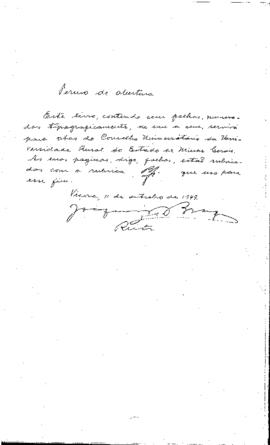 Termo de abertura
Este livro, contendo cem folhas, nume-
radas tipograficamente, de um a cem, servirá
para atas do Conselho Universitário da Uni-
versidade Rural do Estado de Minas Gerais.
As suas páginas, digo, folhas, estão rubri-
cadas com a rubrica que uso para
esse fim.
Viçosa, 11 de outubro de 1949
Joaquim Braga
Reitor